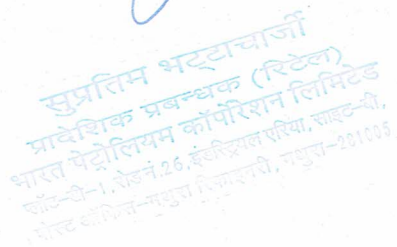 सुप्रतिम भट्टाचार्जी
प्रादेशिक प्रबन्धक (रिटेल)
भारत पेट्रोलियम कॉर्पोरेशन लिमिटेड
प्लॉट-डी-1, रोड नं. 26, इंडस्ट्रियल एरिया, साइट-बी,
पोस्ट ऑफिस-मथुरा रिफाइनरी, मथुरा-281005